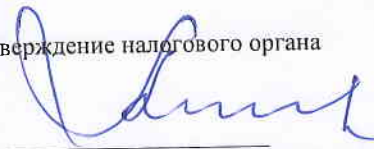 верждение налогового органа